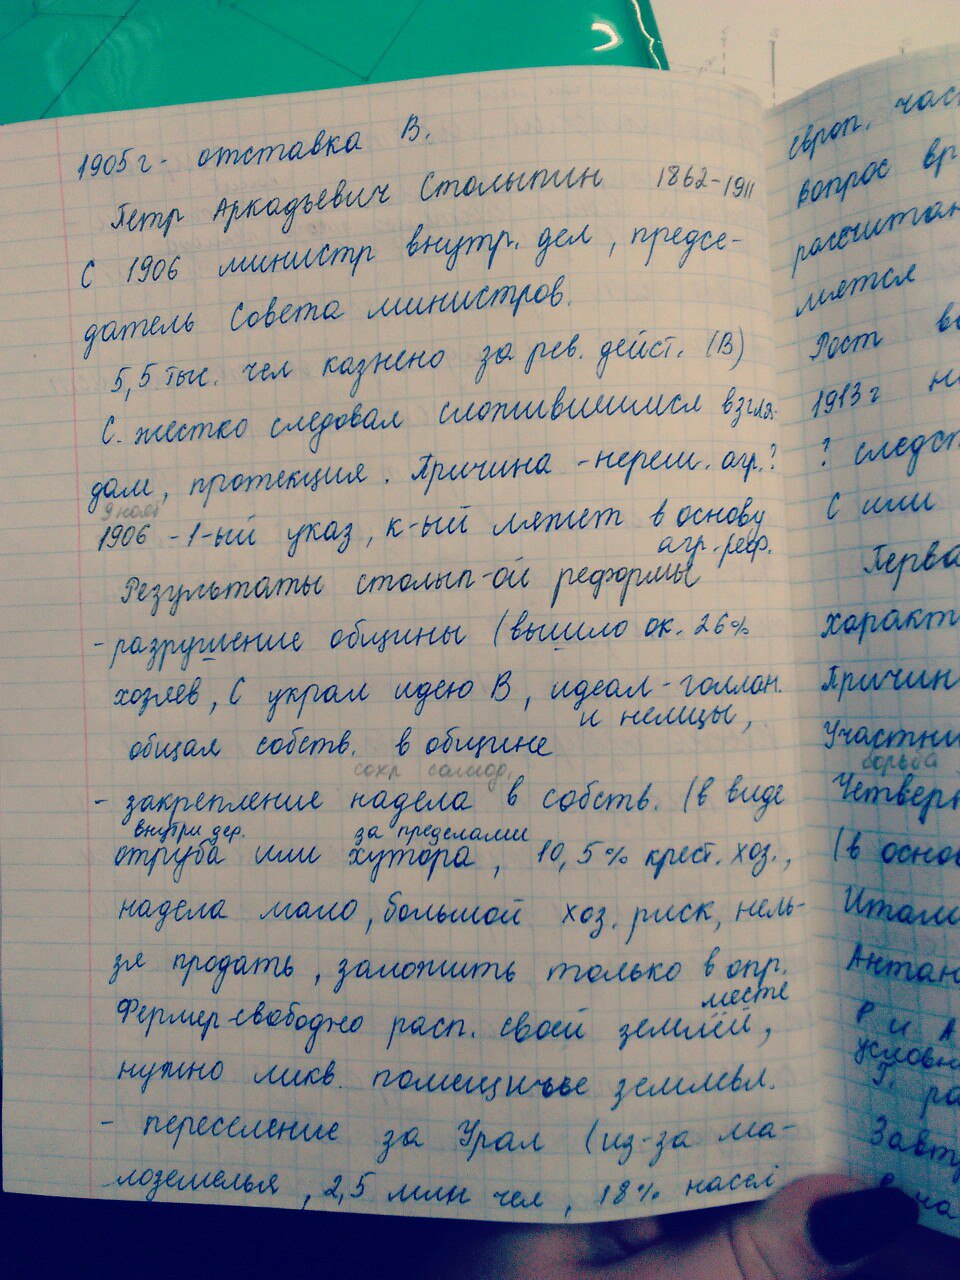 1905 г - отставка В.
Петр Аркадьевич Столыпин 1862-1911
С 1906 министр внутр. дел, предсе-
датель Совета министров.
5,5 тыс. чел казнено за рев. дейст. (В)
С. жестко следовал сложившимся взгля-
дам, протекция. Причина - нереш. агр.?
9 нояб
1906 - 1-ый указ, к-ый ляжет в основу
агр. реф.
Результаты столып-ой реформы
- разрушение общины (вышло ок. 26%
хозяев, С украл идею В, идеал - голлан.
и немцы,
общая собств. в общине
сохр
- закрепление надела в собств. (в виде
внутри дер. за пределами
отруба или хутора, 10,5% крест. хоз.,
надела мало, большой хоз. риск, нель-
зя продать, заложить только в опр.
месте
Фермер свободно расп. своей землёй,
нужно ликв. помещичье землевл.
- переселение за Урал (из-за ма-
лоземелья, 2,5 млн чел, 18% насел
европ. час
вопрос вр
рассчитан
мяется
Рост
1913 г
? следст
С или
Перва
характ
Причин
Участни
борьба
Четвер
(в осно
Итали
Антан
Р и А
условн
ра
Завт